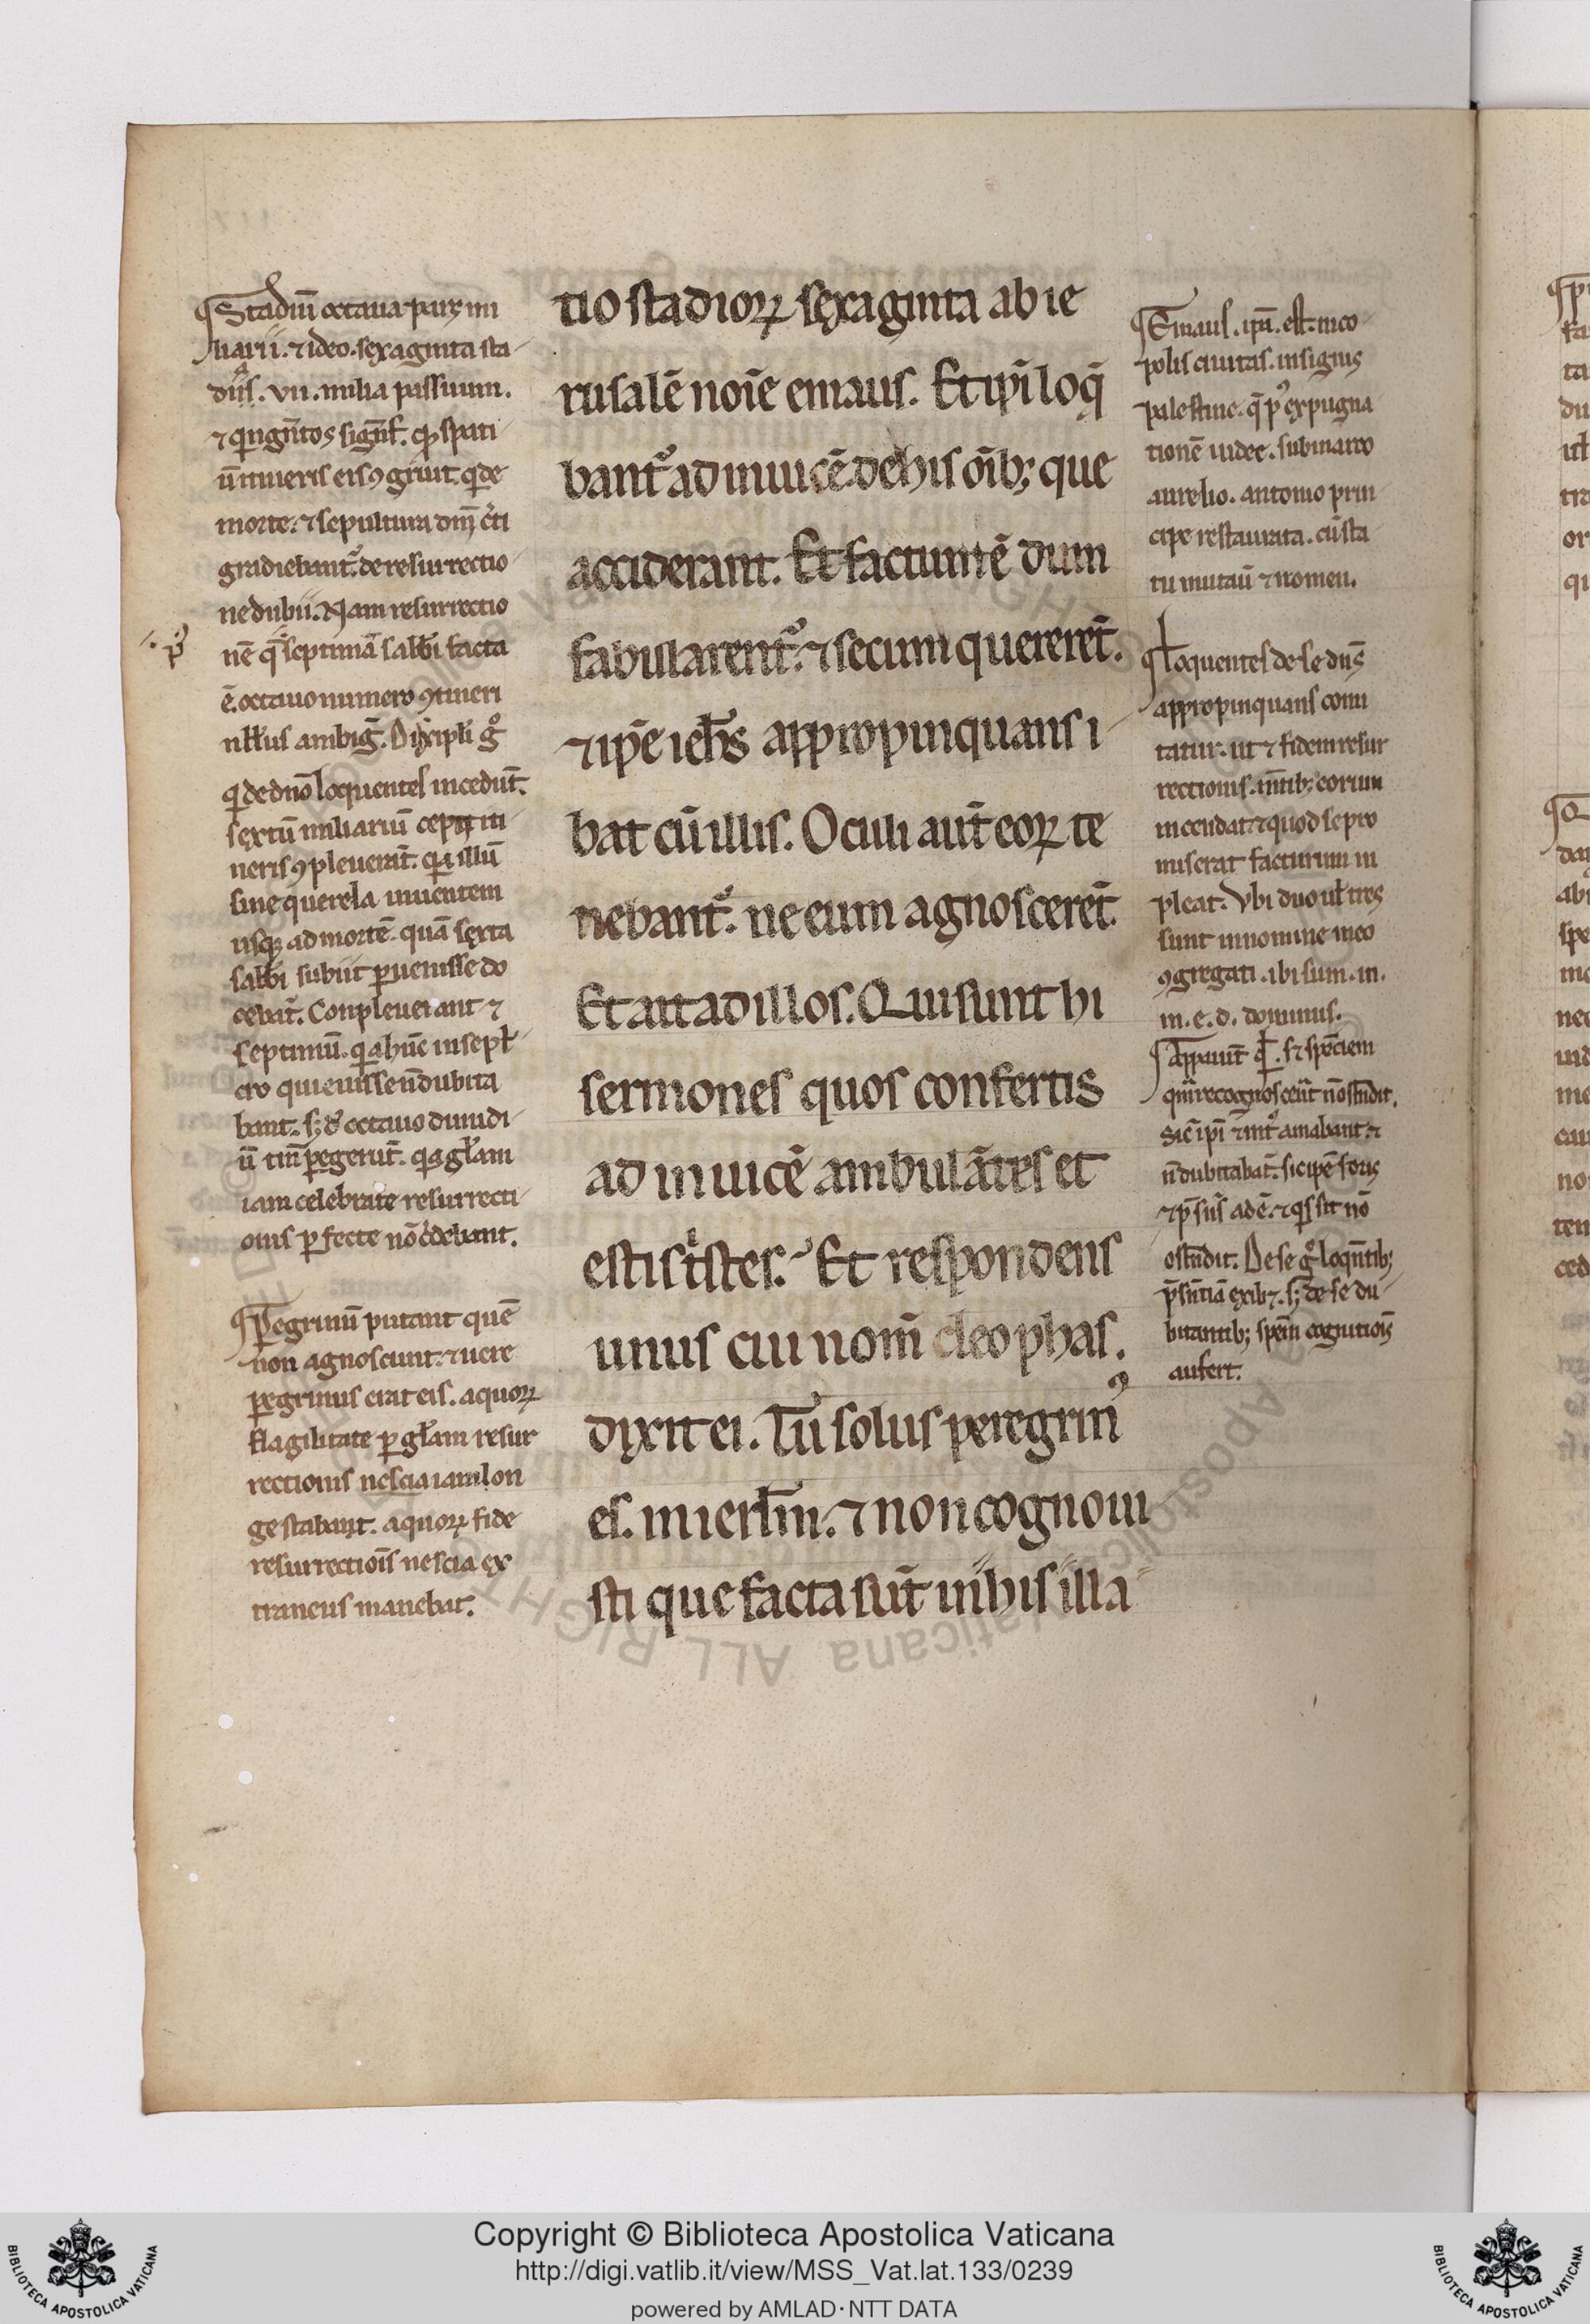 ¶Stadiū octaua pars mi
liarii. ⁊ ideo. sexaginta sta
diis. vii. milia passuum.
⁊ qingētos signāt. qd spati
ū itineris eis ꝯgruit. qi de
morte. ⁊ sepultura dn̄i xp̄i
gradiebant᷑. de resurrectio
ne dubii. Nam resurrectio
nē q̄ septimā sabbi facta
ē. octauo numero ꝯtineri
nullus ambiḡ. Discipli gͦ
qi de dn̄o loquentes incedūt.
sextū miliariū cepti iti
neris ꝯpleuerāt. qia illū
sine querela uiuentem
usqꝫ ad mortē. quā sexta
sabbi subiit ꝑuenisse do
cebāt. Conpleuerant ⁊
septimū. qia hūc in sepul
cro quieuisse n̄ dubita
bant. sꝫ de octauo dimidi
ū tm̄ ꝑegerūt. qia gl̄am
iam celebrate resurrecti
onis ꝑfecte nō c̄debant.
¶Peregrinū putant quē
non agnoscunt. ⁊ uere
ꝑegrinus erat eis. a quoꝝ
fragilitate ꝑ gl̄am resur
rectionis nescia iam lon
ge stabat. a quoꝝ fide
resurrectiōis nescia ex
traneus manebat.
tio stadioꝝ sexaginta ab ie
rusalē noīe emaus. Et ip̄i loq̄
bant᷑ ad inuicē de his oīb; que
acciderant. Et factum ē dum
fabularent᷑. ⁊ secum quereret̄.
⁊ ip̄e ieh̄s appropinquans i
bat cū illis. Oculi aūt eoꝝ te
nebant᷑. ne eum agnosceret̄.
Et ait ad illos. Qui sunt hi
sermones quos confertis
ad inuicē ambulātes et
estis tⁱstes. Et respondens
unus cui nom̄ cleophas.
dixit ei. Tu solus peregrinꝰ
es. in ierl̄m. ⁊ non cognoui
sti que facta sūt in his illa
¶Emaus. ip̄a. est. nico
polis ciuitas. insignis
palestine. q̄ pꝰ expugna
tionē iudee. sub marco
aurelio. antonio prin
cipe restaurata. cū sta
tu mutauit ⁊ nomen.
¶Loquentes de se dn̄s
appropinquans comi
tatur. ut ⁊ fidem resur
rectionis. mētib; eorum
incendat. ⁊ quod se pro
miserat facturum in
pleat. Vbi duo ul̄ tres
sunt in nomine meo
ꝯgregati. ibi sum. in.
m. e. d. dominus.
¶Apparuit qi. sꝫ speciem
quā recognoscerēt nō ostendit.
Sic ip̄i intͣ amabant. ⁊
n̄ dubitabāt. sic ip̄e foris
⁊ p̄sens adē. ⁊ qis sit nō
ostendit. De se gͦ loquētib;
p̄sentiā exib;. sꝫ de se du
bitantib; spēm cognitiōis
aufert.
Copyright © Biblioteca Apostolica Vaticana
http://digi.vatlib.it/view/MSS_Vat.lat.133/0239
powered by AMLAD·NTT DATA
BIBLIOTECA APOSTOLICA VATICANA
BIBLIOTECA APOSTOLICA VATICANA